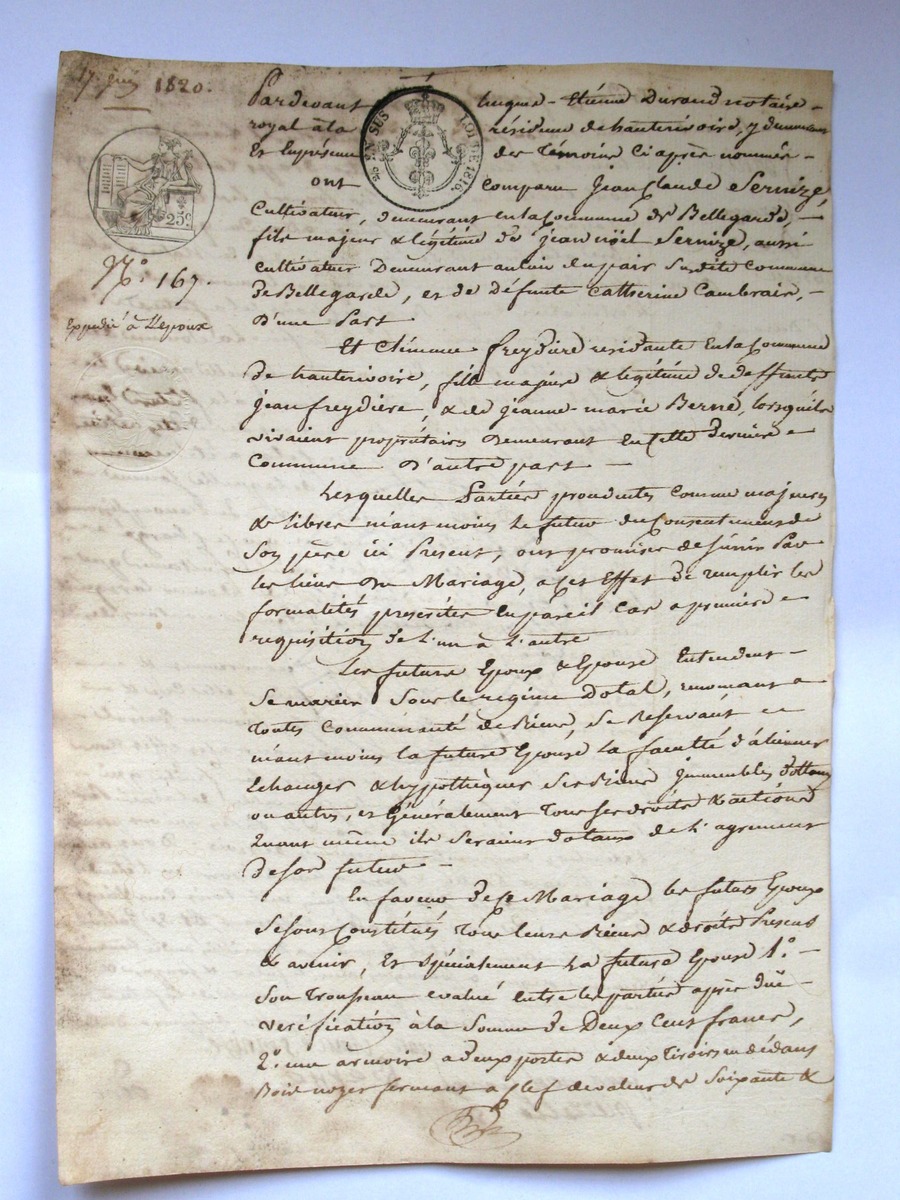 17 juin 1820.
25c
EN SUS
LOI DE 1816.
N.° 167.
Expédié à L'Epoux
Pardevant hugues-Etienne Durand notaire
royal à la résidence de hauterivoire, y demeurant
Et En présence des Témoins Ci après nommés
ont comparu Jean Claude Sernize,
Cultivateur, demeurant en la Commune de Bellegarde,
fils majeur & légitime de jean noël Sernize, aussi
cultivateur Demeurant au lieu du pair Susdite Commune
de Bellegarde, et de défunte Catherine Cambrain,
D'une Part
Et Clémence freydière residante En la Commune
De hauterivoire, fille majeure & légitime de deffunts
jean freydière, & de jeanne-marie Berné, lorsqu'ils
vivaient propriétaires Demeurant en Cette dernière
Commune D'autre part
Lesquelles Parties procedantes Comme majeures
& libres néant moins Le futur du Consentement de
Son père ici Present, ont promises de S'unir Par
les liens du Mariage, a Cet Effet de remplir les
formalités prescrites En pareil Cas a première
requisition de L'un à L'autre
Les future Epoux & Epouse Entendent
Se marier Sous le régime Dotal, renonçant a
Toutes Communauté de Biens, Se Reservant
néant moins la future Epouse La faculté d'aliener
Echanger & hypothèquer Ses Biens Immeubles Dottaux
ou autres, et Généralement Tous Ses droits & actions
Quant même ils Seraient dotaux de L'agrement
de Son futur
En faveur de Ce Mariage les futurs Epoux
Se Sont Constitués Tous leurs Biens & droits Presents
& avenir, Et Spécialement La future Epouse 1.°
Son Trousseau evalué Entre les parties après duë
verification à la Somme de Deux Cent francs,
2.° une armoire a deux portes & deux Tiroirs en dédans
Bois noyer fermant a Clef de valeur de Soixante &